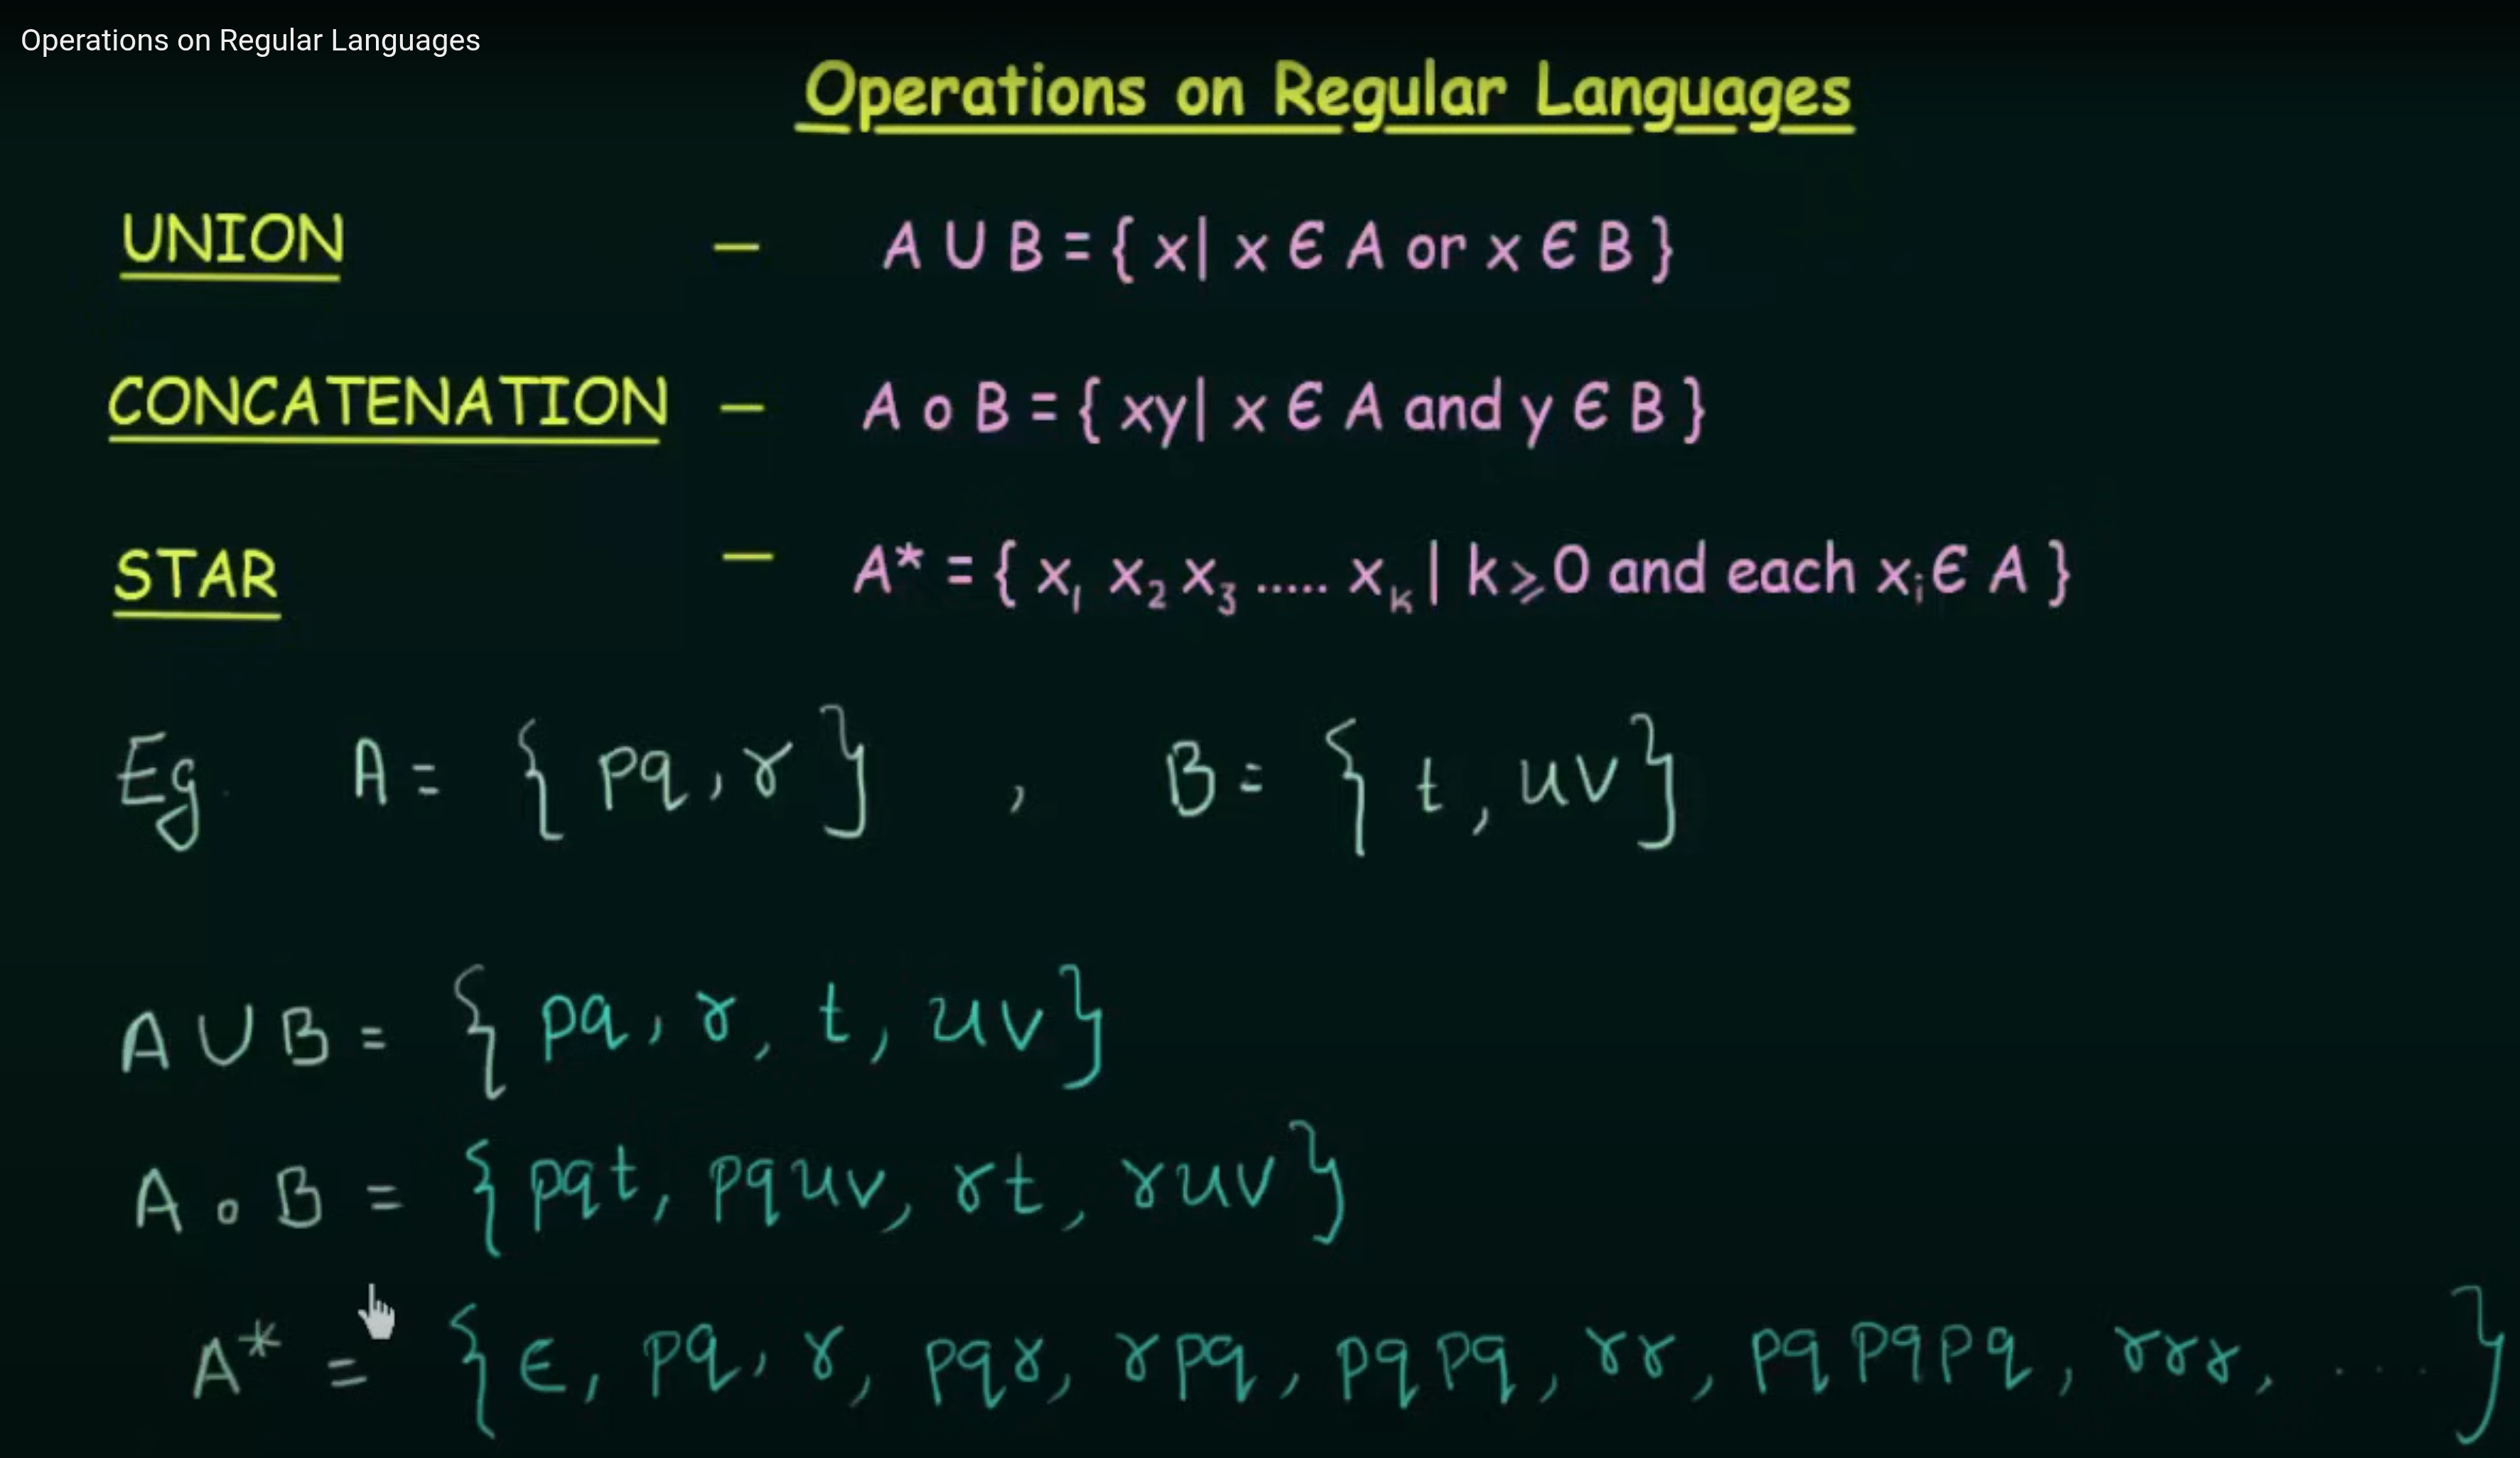 Operations on Regular Languages
Operations on Regular Languages
UNION – A U B = { x| x Є A or x Є B }
CONCATENATION – A o B = { xy| x Є A and y Є B }
STAR – A* = { x₁ x₂ x₃ ..... xₖ | k ⩾ 0 and each xᵢ Є A }
Eg. A = { pq, r } , B = { t, uv }
A U B = { pq, r, t, uv }
A o B = { pqt, pquv, rt, ruv }
A* = { ϵ, pq, r, pqr, rpq, pqpq, rr, pqpqpq, rrr, .... }